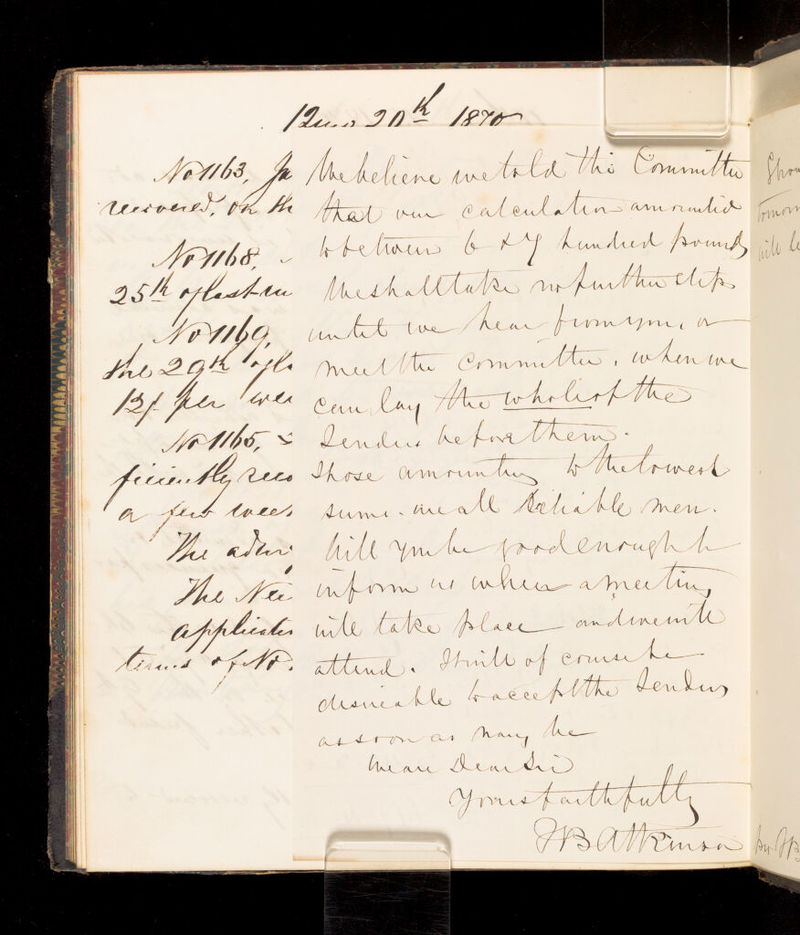 12mo 20th 1870
No 1163, Ja
recovered, on th
No 1168,
25th of last m
No 1169,
the 29th of la
12/ per wee
No 1165,
ficiently reco
a few week
The admi
The Ne
applicatio
terms of No.
We believe we told the Committee
that our calculation amounted
to between 6 & 7 hundred pounds
We shall take no further steps
until we hear from you, or
meet the committee, when we
can lay the whole of the
Tenders before them.
Those amounting to the lowest
sums are all reliable men.
Will you be good enough to
inform us when a meeting
will take place and we will
attend. It will of course be
desireable to accept the Tenders
as soon as may be
We are Dear Sir
Yours faithfully
JB Atkinson
tomorr
will be